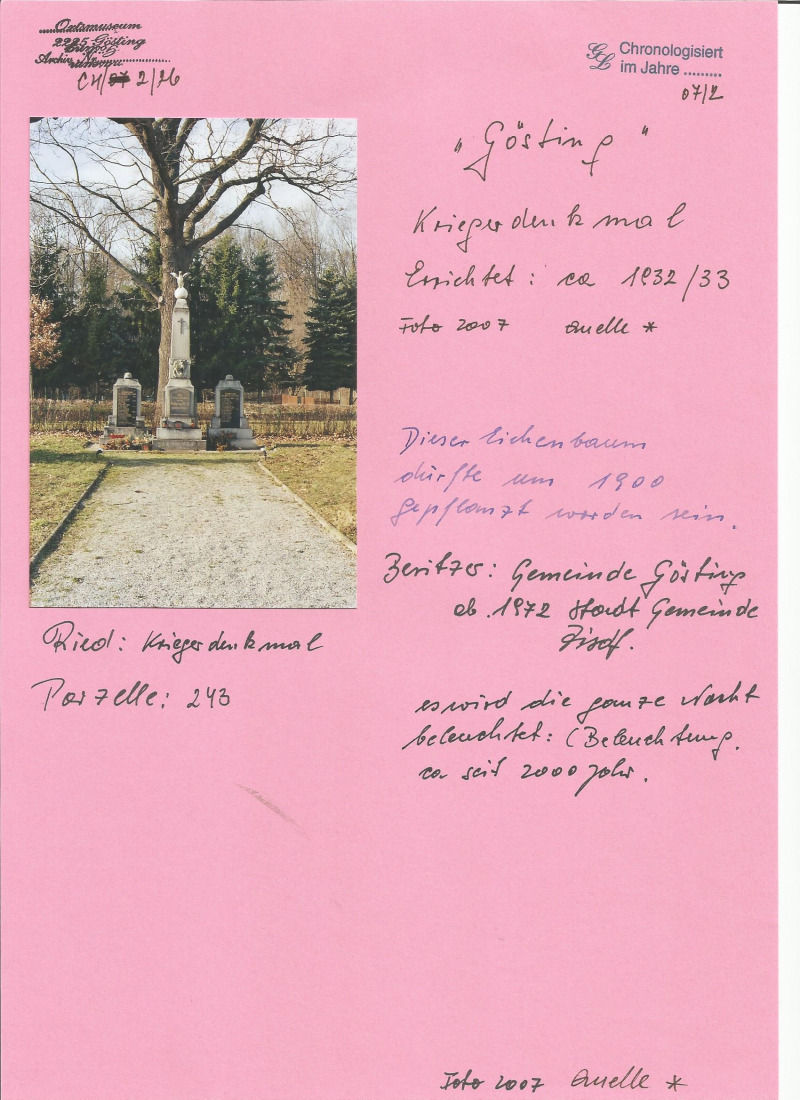 Ortsmuseum
2225 Gösting
Archiv Nr.
CH/ 2/26
GL Chronologisiert
im Jahre .........
07/2
"Gösting"
Kriegerdenkmal
Errichtet: ca 1932/33
Foto 2007 Quelle *
Dieser Eichenbaum
dürfte um 1900
gepflanzt worden sein.
Besitzer: Gemeinde Gösting
ab. 1972 Stadt Gemeinde
Zisdf.
Ried: Kriegerdenkmal
Parzelle: 243
es wird die ganze Nacht
beleuchtet: (Beleuchtung.
ca seit 2000 Jahr.
Foto 2007 Quelle *